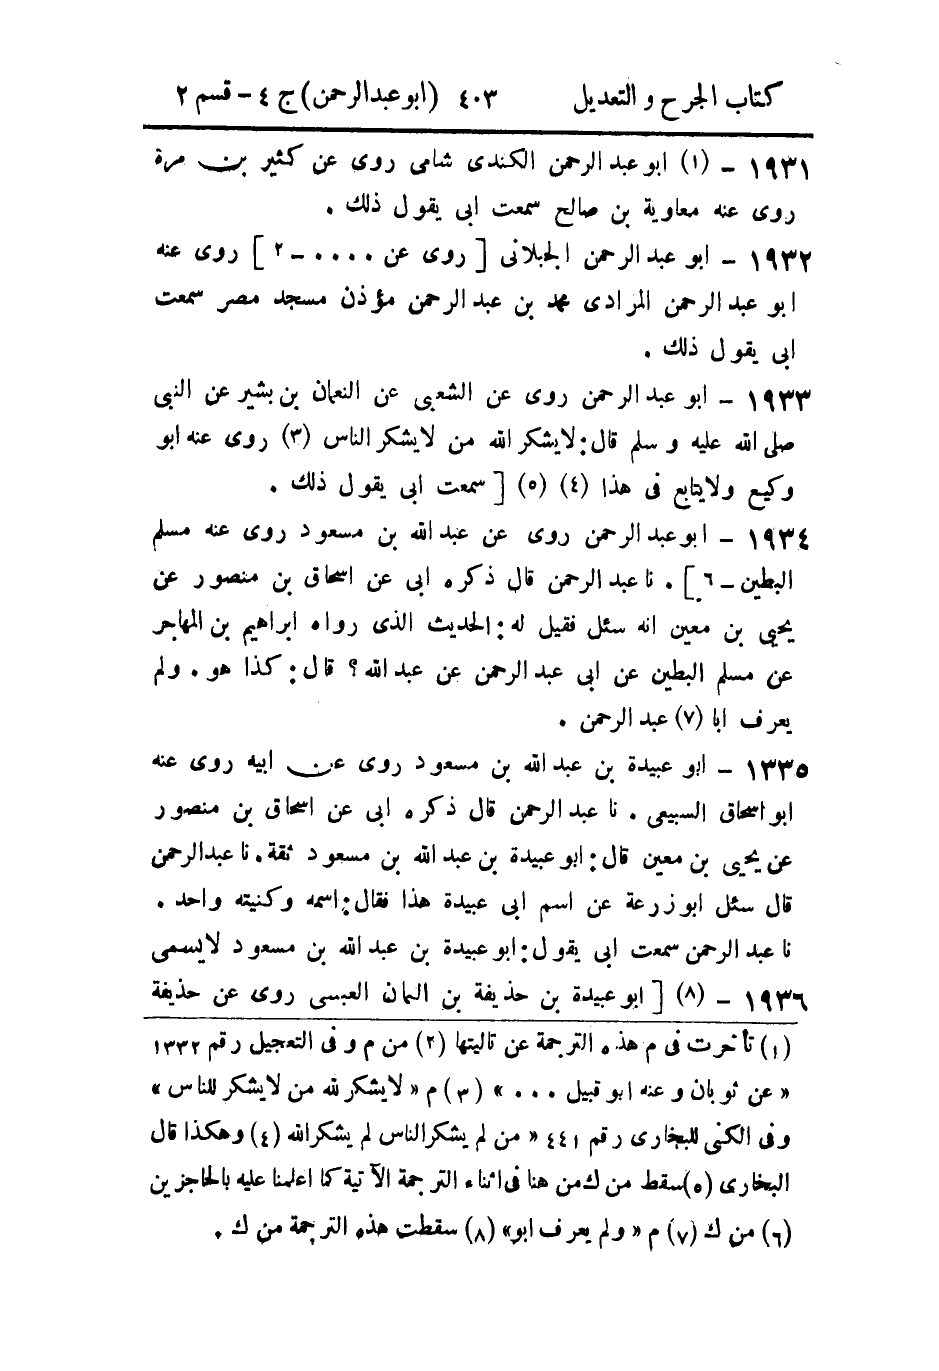 كتاب الجرح و التعديل ٤٠٣ (ابو عبد الرحمن) ج ٤ - قسم ٢
١٩٣١ - (١) ابو عبد الرحمن الكندى شامى روى عن كثير بن مرة
روى عنه معاوية بن صالح سمعت ابى يقول ذلك .
١٩٣٢ - ابو عبد الرحمن الجبلانى [ روى عن .... - ٢ ] روى عنه
ابو عبد الرحمن المرادى محمد بن عبد الرحمن مؤذن مسجد مصر سمعت
ابى يقول ذلك .
١٩٣٣ - ابو عبد الرحمن روى عن الشعبى عن النعمان بن بشير عن النبى
صلى الله عليه و سلم قال: لايشكر الله من لايشكر الناس (٣) روى عنه ابو
وكيع ولايتابع فى هذا (٤) (٥) [ سمعت ابى يقول ذلك .
١٩٣٤ - ابو عبد الرحمن روى عن عبد الله بن مسعود روى عنه مسلم
البطين - ٦ ] . نا عبد الرحمن قال ذكره ابى عن اسحاق بن منصور عن
يحيى بن معين انه سئل فقيل له: الحديث الذى رواه ابراهيم بن المهاجر
عن مسلم البطين عن ابى عبد الرحمن عن عبد الله ؟ قال: كذا هو . ولم
يعرف ابا (٧) عبد الرحمن .
١٣٣٥ - ابو عبيدة بن عبد الله بن مسعود روى عن ابيه روى عنه
ابو اسحاق السبيعى . نا عبد الرحمن قال ذكره ابى عن اسحاق بن منصور
عن يحيى بن معين قال: ابو عبيدة بن عبد الله بن مسعود ثقة . نا عبد الرحمن
قال سئل ابو زرعة عن اسم ابى عبيدة هذا فقال: اسمه وكنيته واحد .
نا عبد الرحمن سمعت ابى يقول: ابو عبيدة بن عبد الله بن مسعود لايسمى
١٩٣٦ - (٨) [ ابو عبيدة بن حذيفة بن اليمان العبسى روى عن حذيفة
(١) تأخرت فى م هذه الترجمة عن تاليتها (٢) من م و فى التعجيل رقم ١٣٣٢
« عن ثوبان و عنه ابو قبيل ... » (٣) م « لايشكر لله من لايشكر للناس »
وفى الكنى للبخارى رقم ٤٤١ « من لم يشكر الناس لم يشكر الله (٤) وهكذا قال
البخارى (٥) سقط من ك من هنا فى اثناء الترجمة الآتية كما اعلمنا عليه بالحاجزين
(٦) من ك (٧) م « ولم يعرف ابو» (٨) سقطت هذه الترجمة من ك .